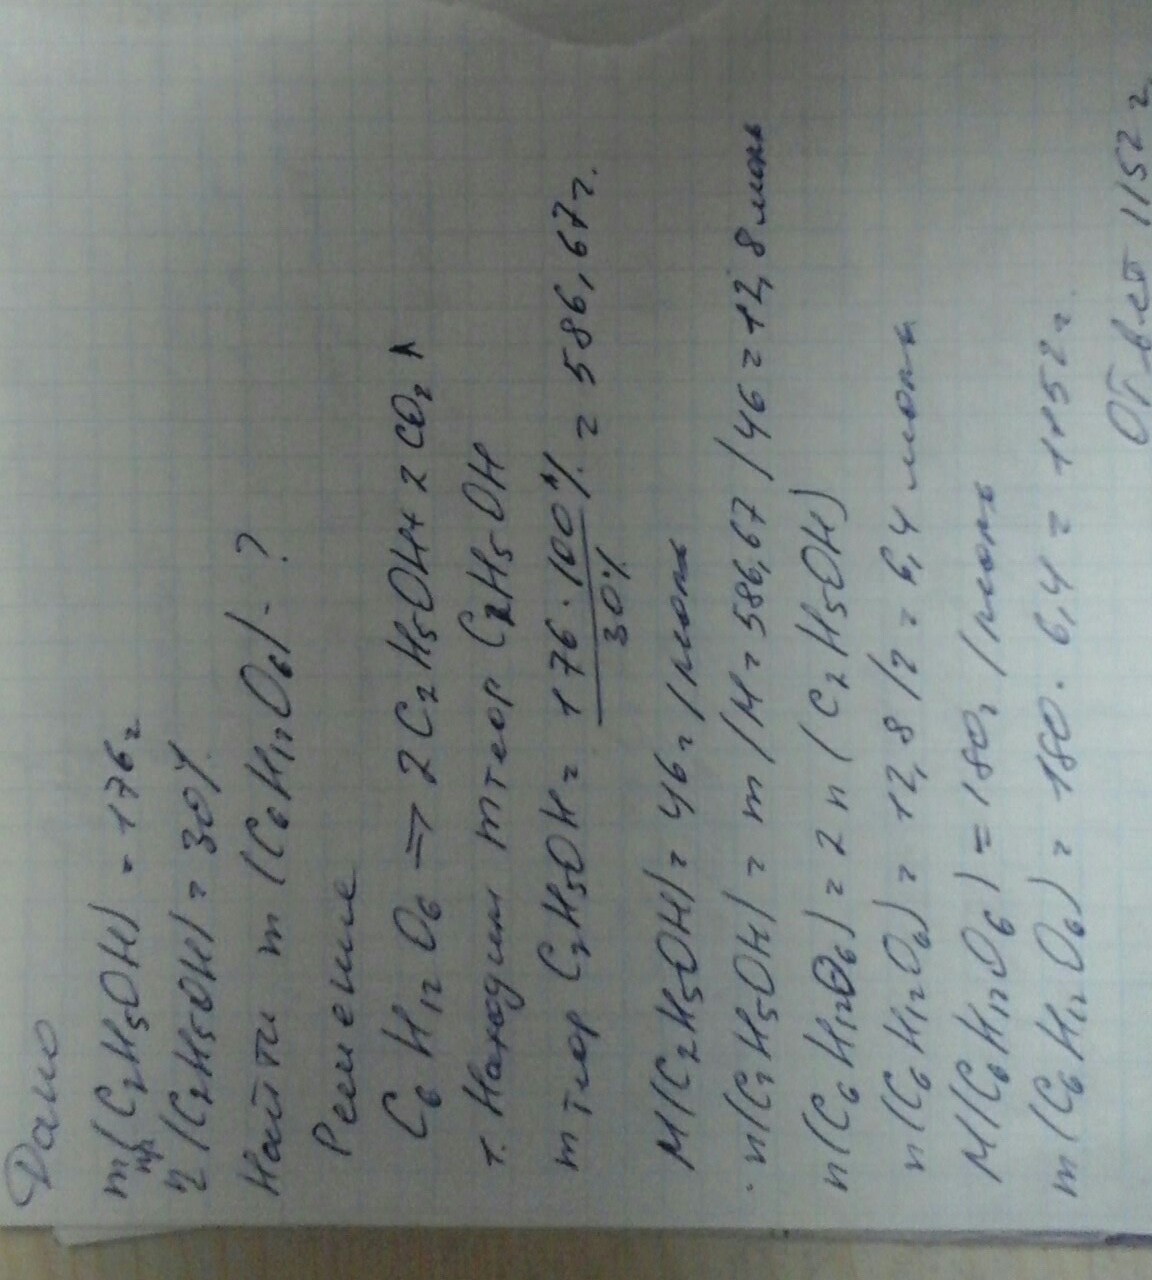 Дано
mпр(C₂H₅OH) = 176г
η(C₂H₅OH) = 30%
Найти m(C₆H₁₂O₆) - ?
Решение
C₆H₁₂O₆ => 2C₂H₅OH + 2CO₂↑
т. Находим mтеор C₂H₅OH
mтеор C₂H₅OH = 176·100% / 30% = 586,67г.
M(C₂H₅OH) = 46г/моль
n(C₂H₅OH) = m/M = 586,67/46 = 12,8 моль
n(C₆H₁₂O₆) = 2n(C₂H₅OH)
n(C₆H₁₂O₆) = 12,8/2 = 6,4 моль
M(C₆H₁₂O₆) = 180г/моль
m(C₆H₁₂O₆) = 180·6,4 = 1152г.
Ответ 1152г